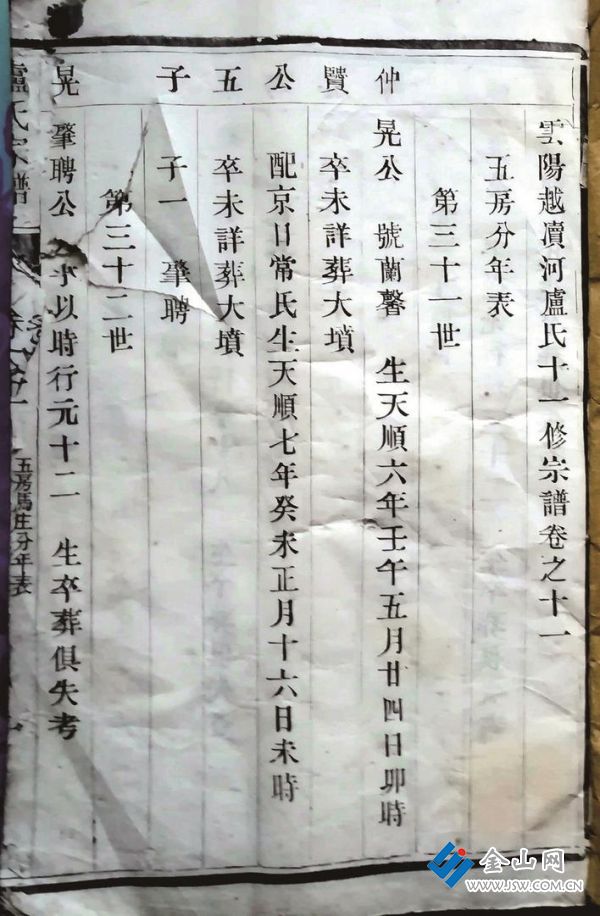 雲陽越瀆河盧氏十一修宗譜卷之十一
五房分年表
第三十一世
仲賢公五子
晃公 號蘭馨 生天順六年壬午五月廿四日卯時
卒未詳葬大墳
配京口常氏生天順七年癸未正月十六日未時
卒未詳葬大墳
子一 肇聘
第三十二世
晃
肇聘公 字以時行元十二 生卒葬俱失考
盧氏宗譜
五房馬庄分年表
金山网
WWW.JSW.COM.CN